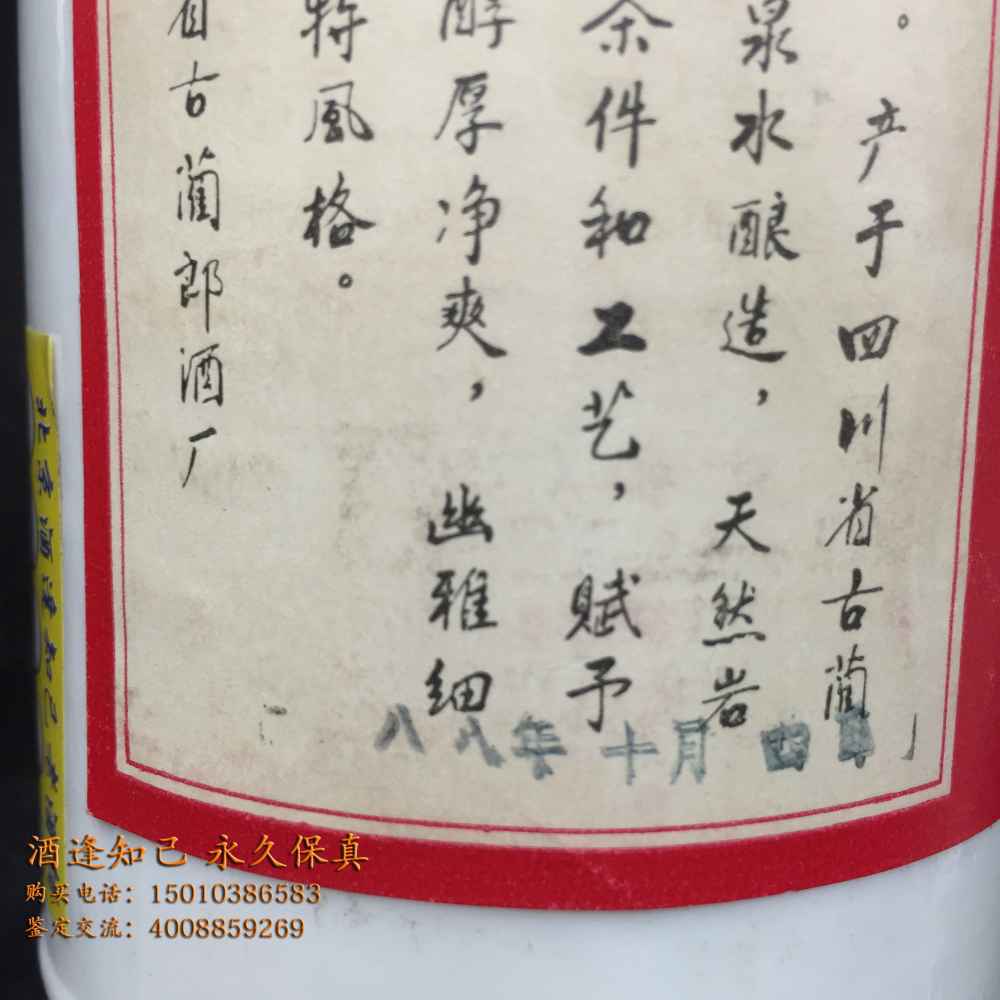 。产于四川省古蔺
泉水酿造，天然岩
条件和工艺，赋予
醇厚净爽，幽雅细
特风格。
省古蔺郎酒厂
八八年十月四日
酒逢知己 永久保真
购买电话：15010386583
鉴定交流：4008859269